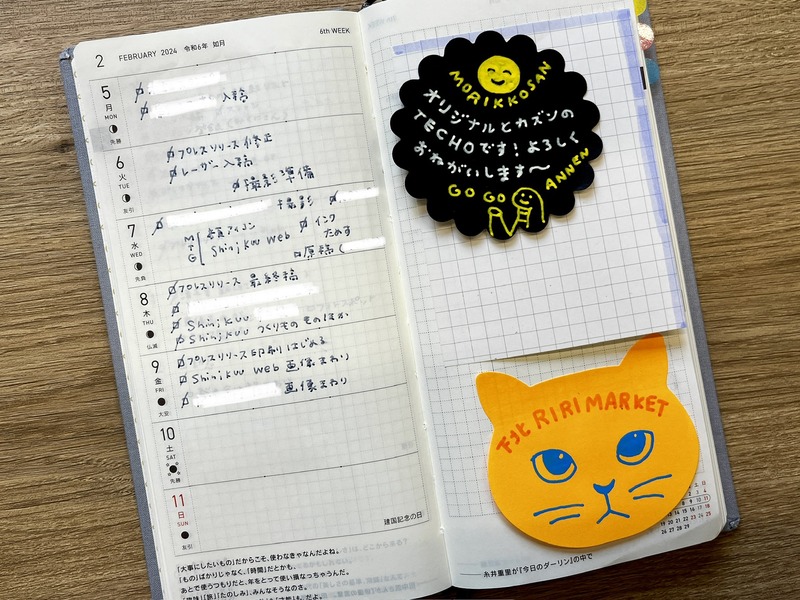 2 FEBRUARY 2024 令和6年 如月
6th WEEK
5
月
MON
先勝
入稿
6
火
TUE
友引
プレスリリース修正
レーザー入稿
撮影準備
7
水
WED
先負
撮影
MTG
Shinjkuu Web
インク
ためす
原稿
8
木
THU
仏滅
プレスリリース 最終稿
Shinjkuu
Shinjkuu つくりもの ものほか
9
金
FRI
大安
プレスリリース印刷はじめる
Shinjkuu web 画像まわり
画像まわり
10
土
SAT
先勝
11
日
SUN
友引
建国記念の日
「大事にしたいもの」だからこそ、使わなきゃなんだよね。
「もの」ばかりじゃなく、「時間」だとかも、
あとで使うつもりだと、年をとって使い損なっちゃうんだ。
MORIKKOSAN
オリジナルとカズンの
TECHOです!よろしく
おねがいします〜
GO GO ANNEN
下北 RIRI MARKET
糸井重里が『今日のダーリン』の中で